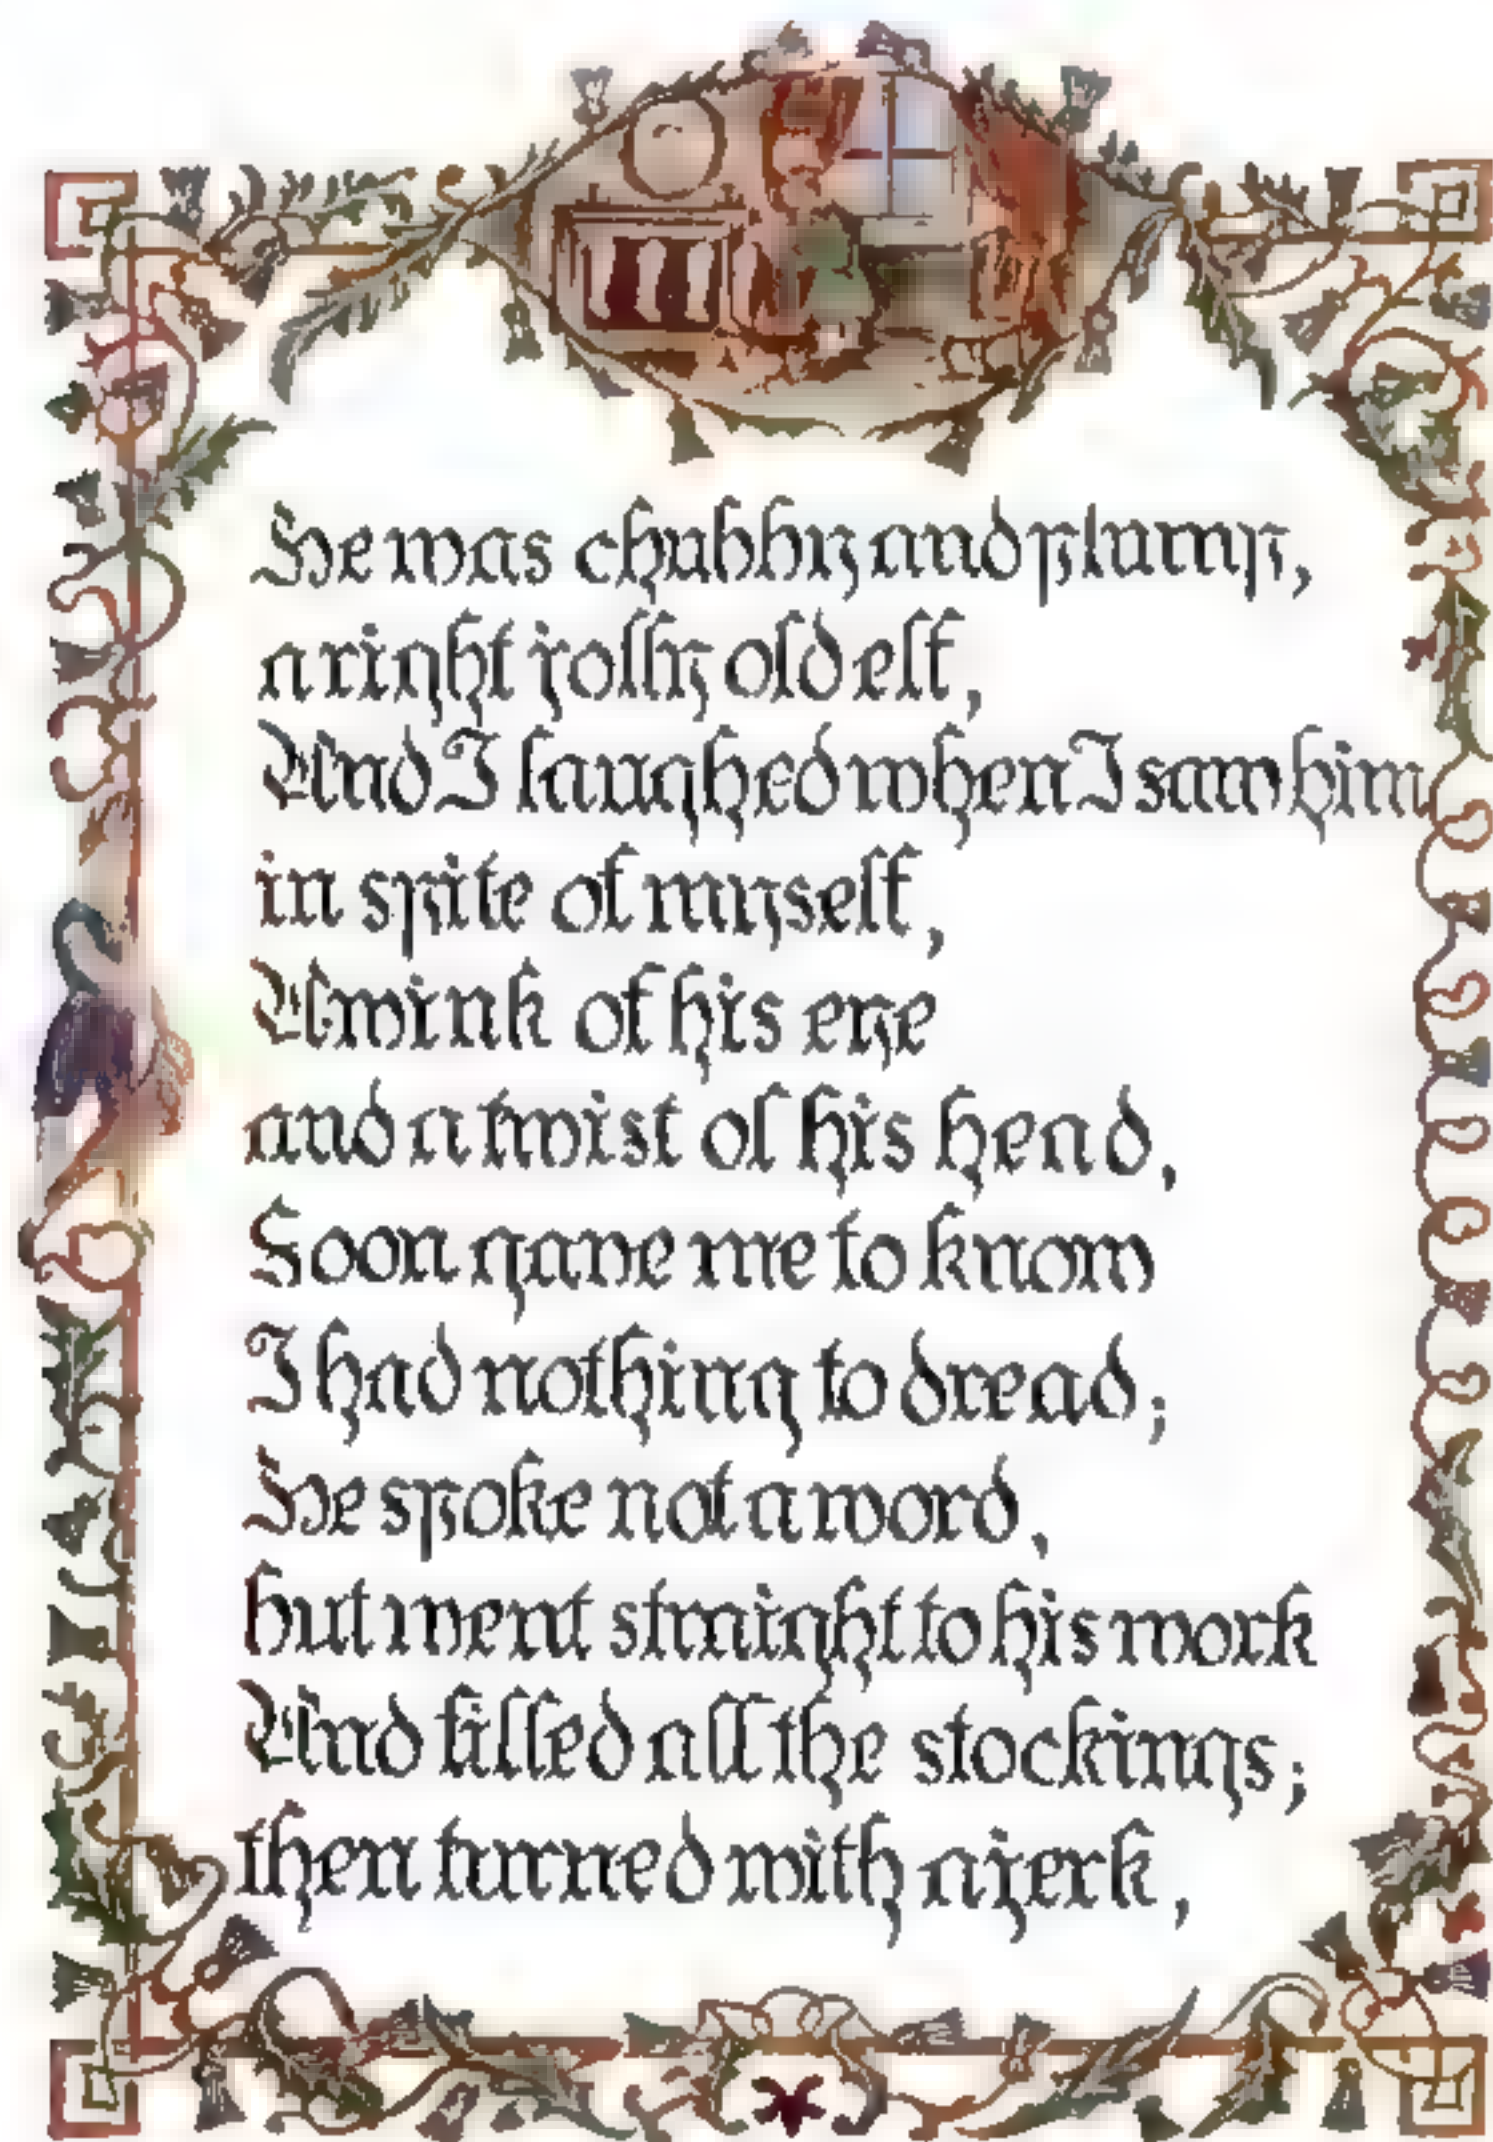 He was chubby and plump,
a right jolly old elf,
And I laughed when I saw him
in spite of myself,
A wink of his eye
and a twist of his head,
Soon gave me to know
I had nothing to dread;
He spoke not a word,
but went straight to his work
And filled all the stockings;
then turned with a jerk,